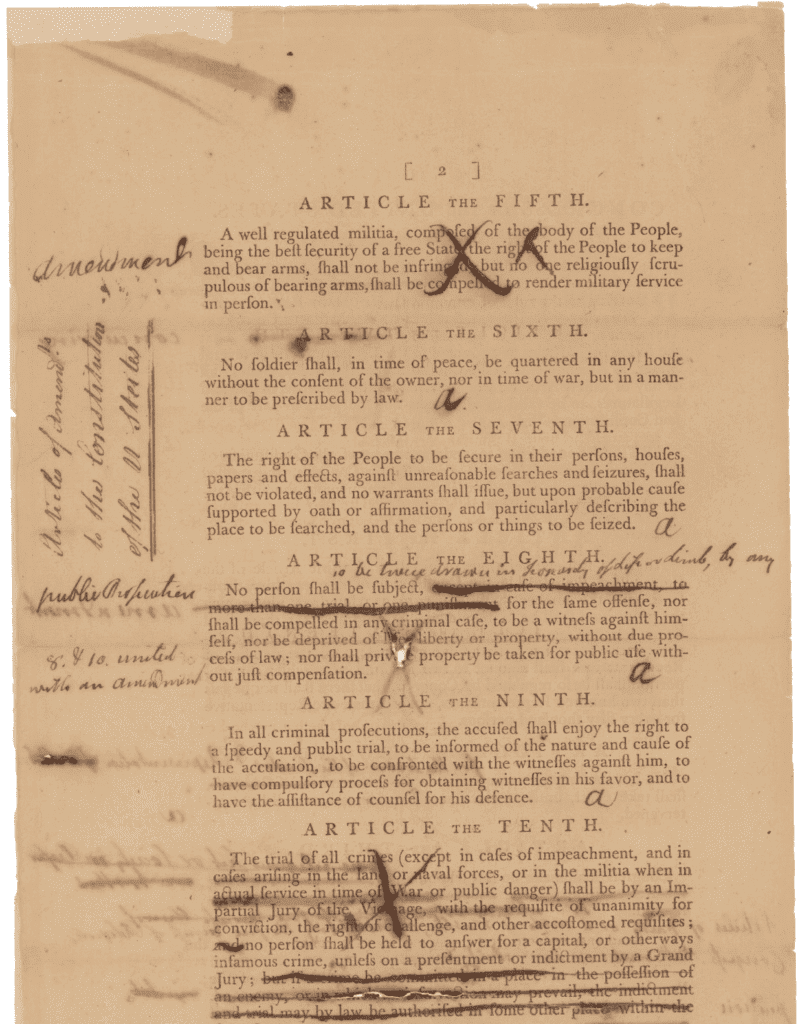 [ 2 ]
ARTICLE THE FIFTH.
A well regulated militia, compoſed of the body of the People,
being the beſt ſecurity of a free State, the right of the People to keep
and bear arms, ſhall not be infringed, but no one religiouſly ſcru-
pulous of bearing arms, ſhall be compelled to render military ſervice
in perſon.
amendment
Articles of Amend.ts
to the Constitution
of the U States
ARTICLE THE SIXTH.
No ſoldier ſhall, in time of peace, be quartered in any houſe
without the conſent of the owner, nor in time of war, but in a man-
ner to be preſcribed by law. a
ARTICLE THE SEVENTH.
The right of the People to be ſecure in their perſons, houſes,
papers and effects, againſt unreaſonable ſearches and ſeizures, ſhall
not be violated, and no warrants ſhall iſſue, but upon probable cauſe
ſupported by oath or affirmation, and particularly deſcribing the
place to be ſearched, and the perſons or things to be ſeized. a
ARTICLE THE EIGHTH.
to be twice drawn in jeopardy of life or limb, by any
public Prosecution
No perſon ſhall be ſubject, except in caſe of impeachment, to
more than one trial, or one puniſhment for the ſame offenſe, nor
ſhall be compelled in any criminal caſe, to be a witneſs againſt him-
ſelf, nor be deprived of life, liberty or property, without due pro-
ceſs of law; nor ſhall private property be taken for public uſe with-
out juſt compenſation. a
8. & 10. united
with an amendment
ARTICLE THE NINTH.
In all criminal proſecutions, the accuſed ſhall enjoy the right to
a ſpeedy and public trial, to be informed of the nature and cauſe of
the accuſation, to be confronted with the witneſſes againſt him, to
have compulſory proceſs for obtaining witneſſes in his favor, and to
have the aſſiſtance of counſel for his defence. a
ARTICLE THE TENTH.
The trial of all crimes (except in caſes of impeachment, and in
caſes ariſing in the land or naval forces, or in the militia when in
actual ſervice in time of War or public danger) ſhall be by an Im-
partial Jury of the Vicinage, with the requiſite of unanimity for
conviction, the right of challenge, and other accoſtomed requiſites;
and no perſon ſhall be held to anſwer for a capital, or otherways
infamous crime, unleſs on a preſentment or indictment by a Grand
Jury; but if a crime be committed in a place in the poſſeſſion of
an enemy, or in which an inſurrection may prevail, the indictment
and trial may by law be authoriſed in ſome other place within the